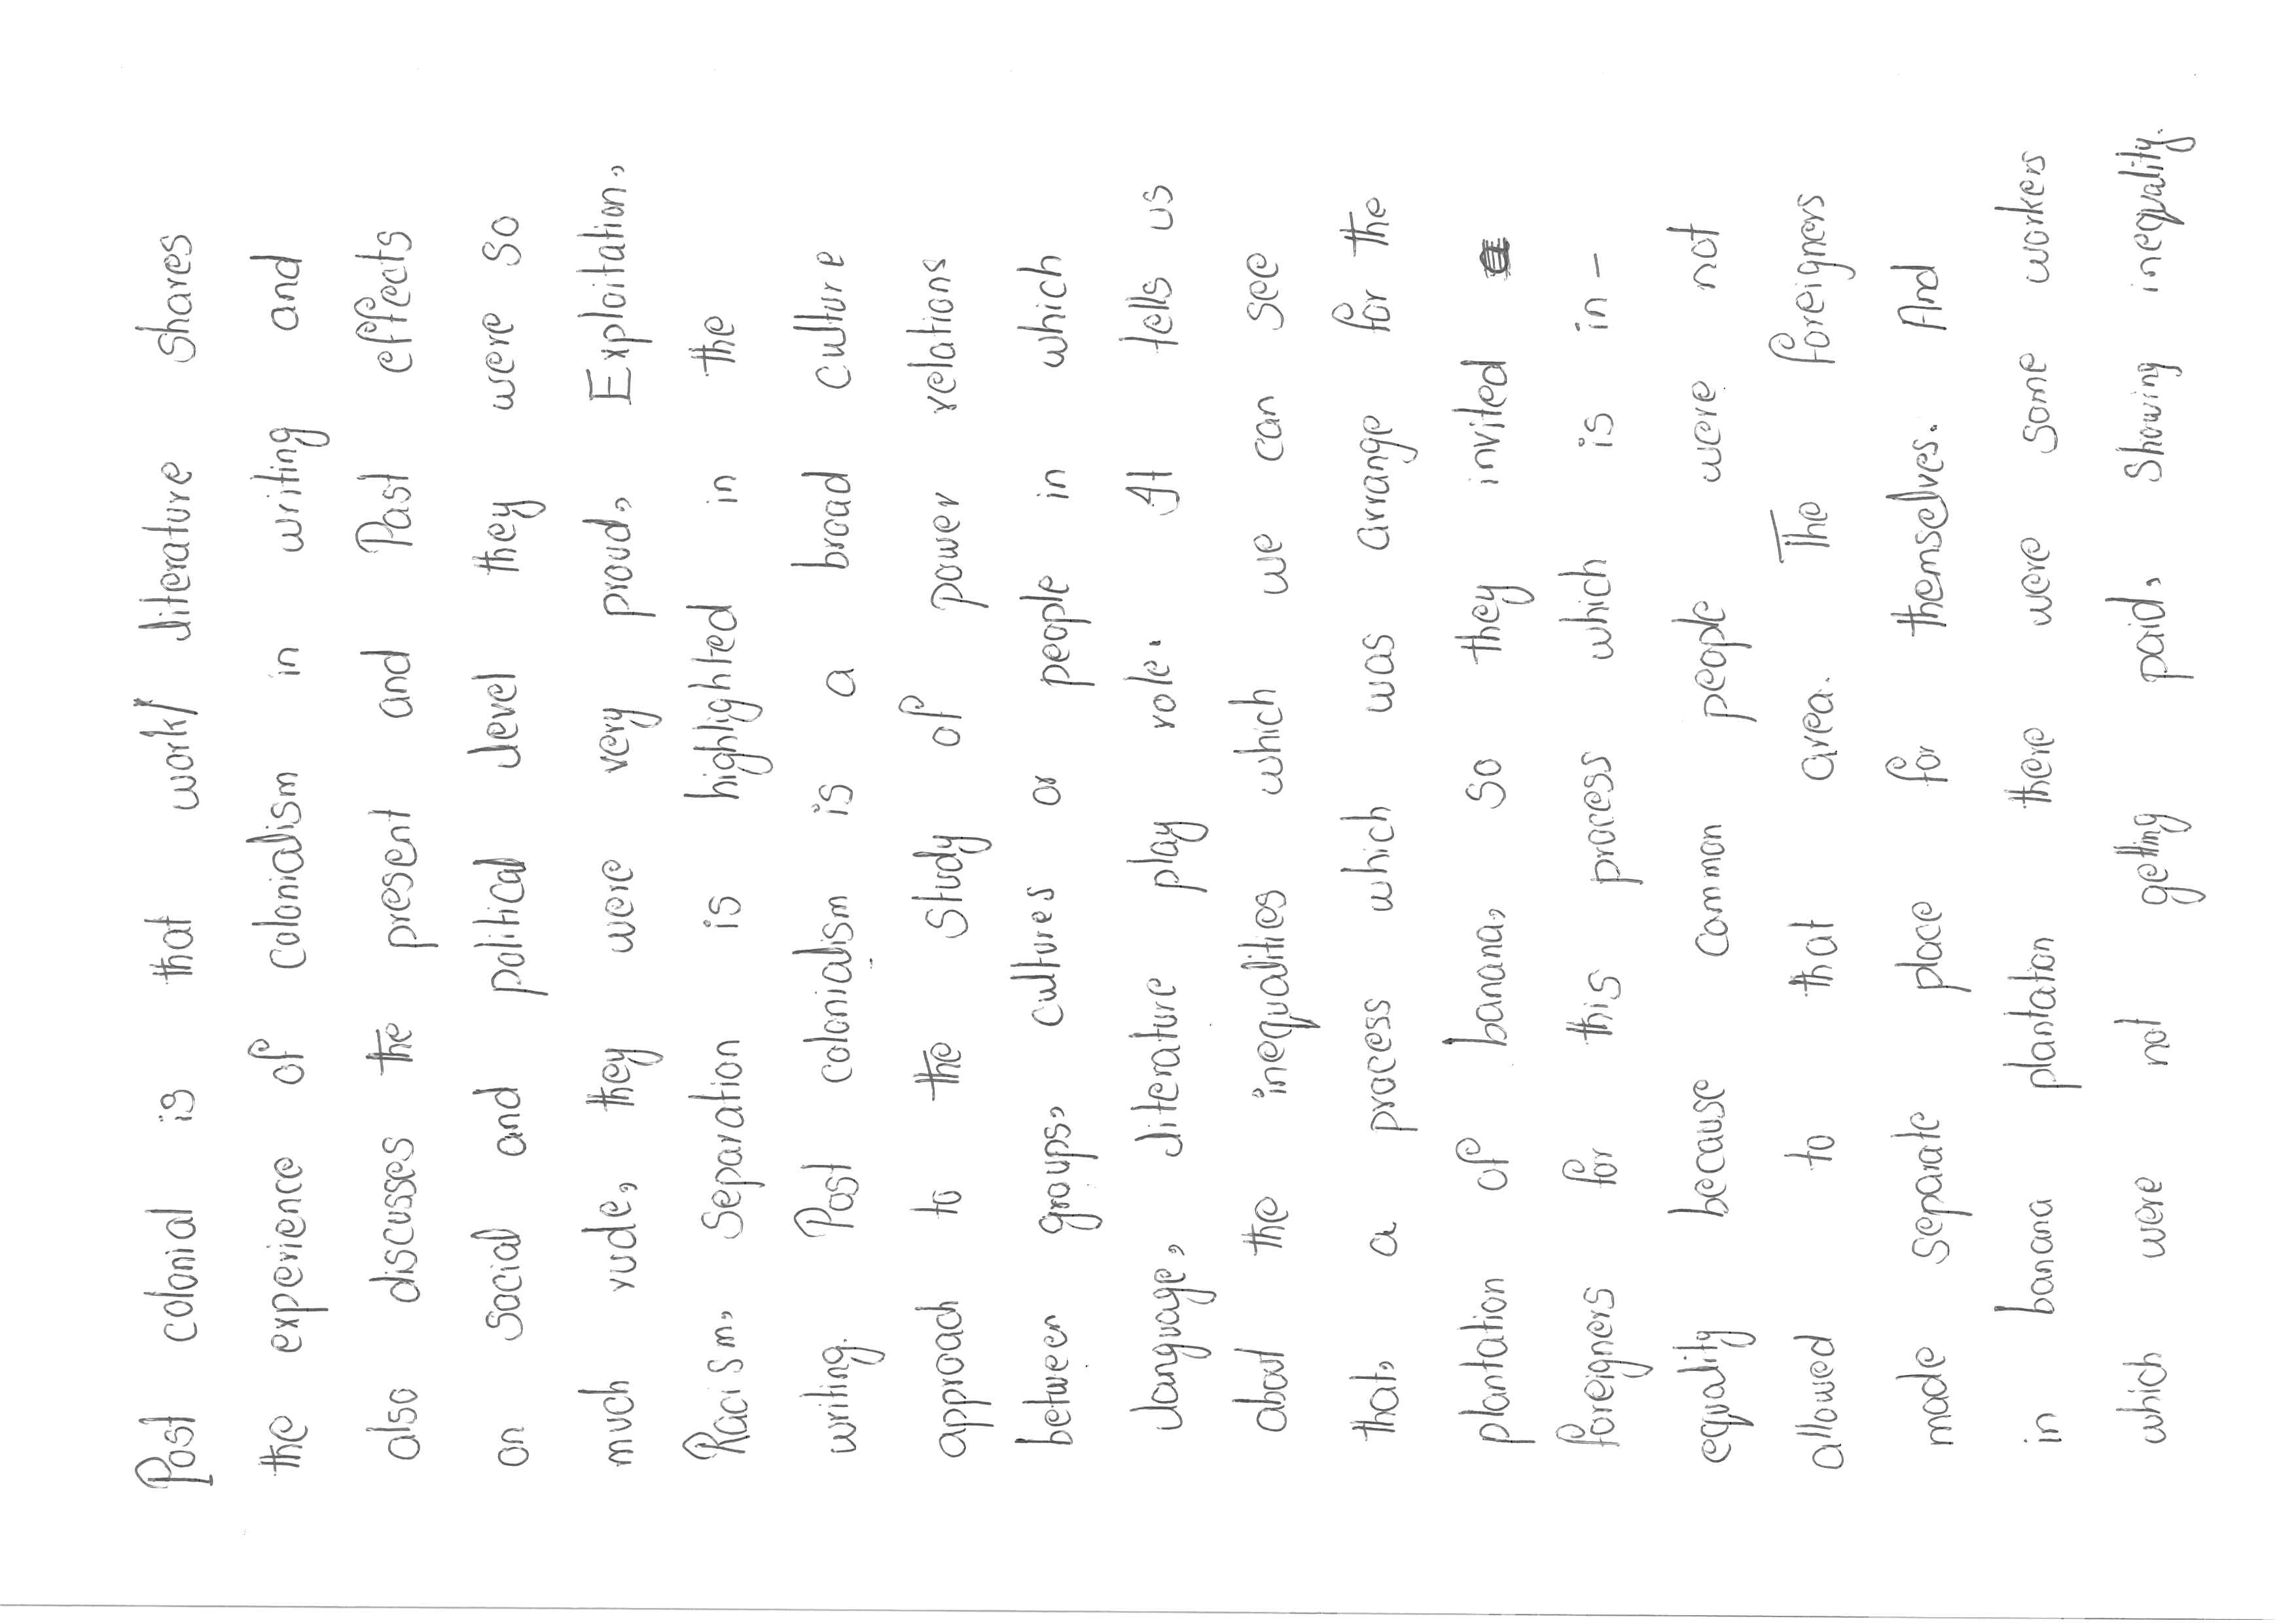 Post colonial is that work/ literature shares
the experience of colonialism in writing and
also discusses the present and Past effects
on social and political level they were so
much rude, they were very proud, Exploitation,
Racism, Separation is highlighted in the
writing. Post colonialism is a broad culture
approach to the study of power relations
between groups, cultures or people in which
language, literature play role. It tells us
about the inequalities which we can see
that, a process which was arrange for the
plantation of banana, so they invited
foreigners for this process which is in-
equality because common people were not
allowed to that area. The foreigners
made separate place for themselves. And
in banana plantation there were some workers
which were not getting paid, showing inequality.